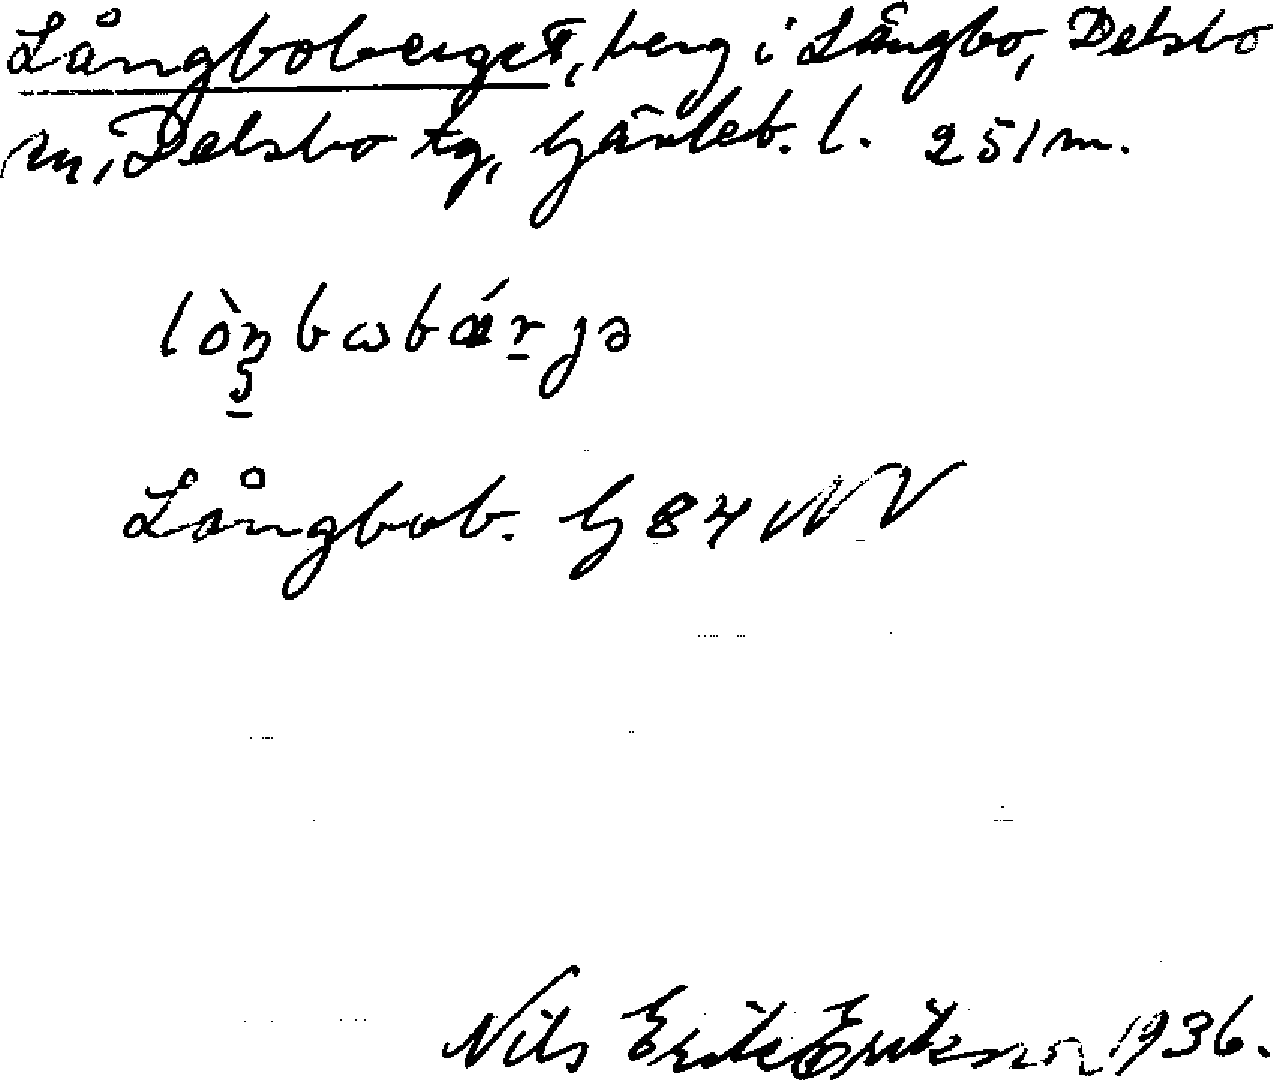 Långboberget, berg i Långbo, Delsbo
sn, Delsbo tg, Gävleb. l. 251 m.
lòŋbωbárjə
Långbob. G 84 NV
Nils Erik Eriksson 1936.